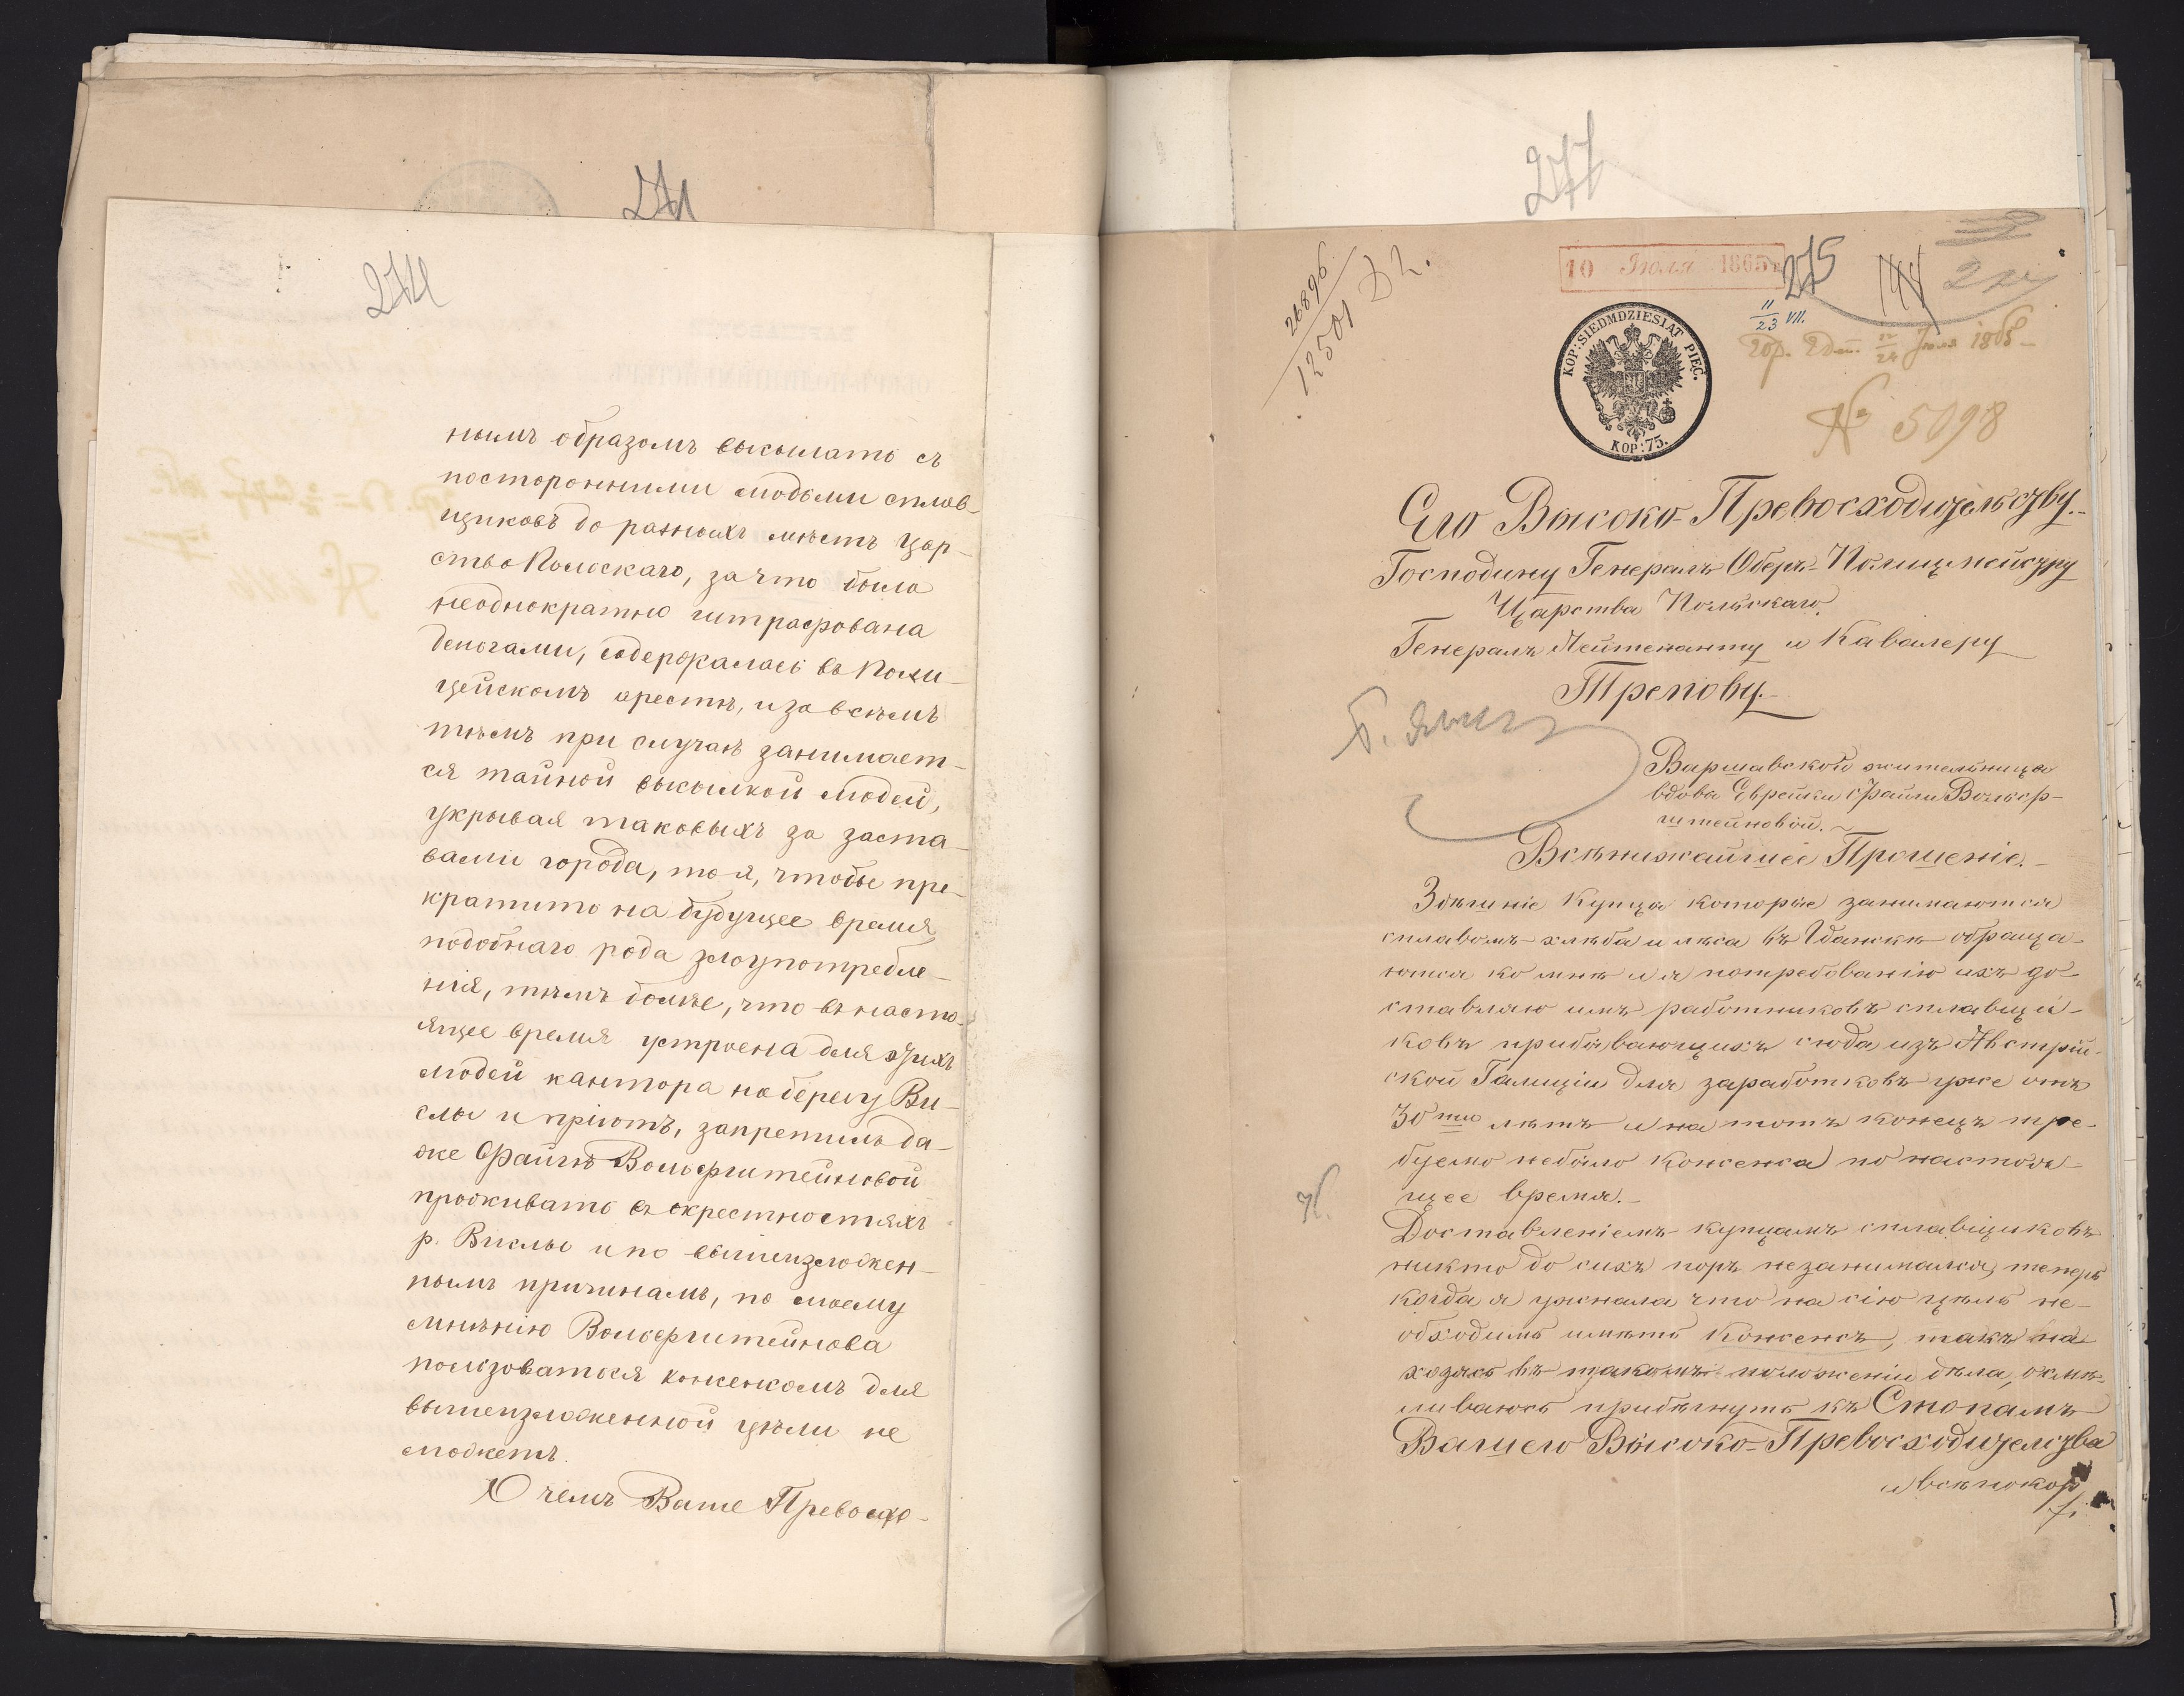 271
274
нымъ образомъ высылать съ
посторонними людьми сплав-
щиковъ до разныхъ мѣстъ Цар-
ства Польскаго, за что была
неоднократно штрафована
деньгами, содержалась въ Поли-
цейскомъ арестѣ, и за всѣмъ
тѣмъ при случаѣ занимает-
ся тайной высылкой людей,
укрывая таковыхъ за заста-
вами города, то я, чтобы пре-
кратить на будущее время
подобнаго рода злоупотребле-
нія, тѣмъ болѣе, что въ насто-
ящее время устроена для этихъ
людей кантора на берегу Ви-
слы и пріютъ, запретилъ да-
же Файгѣ Вольфштейновой
проживать въ окрестностяхъ
р. Вислы и по вышеизложен-
нымъ причинамъ, по моему
мнѣнію Вольфштейнова
пользоваться консенсомъ для
вышеизложенной цѣли не
можетъ.
О чемъ Ваше Превосхо-
277
26896
12501 Д 2.
10 Іюля 1865 г.
275
144
11/23 VII.
12/24 Іюля 1865
№ 5098
KOP: SIEDMDZIESIAT PIĘC.
KOP: 75.
Его Высоко-Превосходительству.
Господину Генералъ Оберъ-Полицмейстру
Царства Польскаго.
Генералъ Лейтенанту и Кавалеру
Трепову.
Варшавской жительница
вдова Еврейки Файги Вольф-
штейновой.
Всѣнижайшее Прошеніе.
Здѣшніе Купца которые занимаются
сплавомъ хлѣба и лѣса въ Гданскѣ обраща-
ются ко мнѣ и я потребованію ихъ до-
ставляю имъ работниковъ сплавщи-
ковъ прибывающихъ сюда изъ Австрій-
ской Галиціи для заработковъ уже отъ
30ти лѣтъ и на тотъ конецъ тре-
буемо небыло Консенса по настоя-
щее время.
Доставленіемъ купцамъ сплавщиковъ
никто до сихъ поръ незанимался, теперь
когда я узнала что на сію цѣль не-
обходимъ имѣть Консенсъ, такъ на
ходясь въ такомъ положеніи дѣла, осмѣ-
ливаюсь прибѣгнуть къ Стопамъ
Вашего Высоко-Превосходительства
и всѣпокор